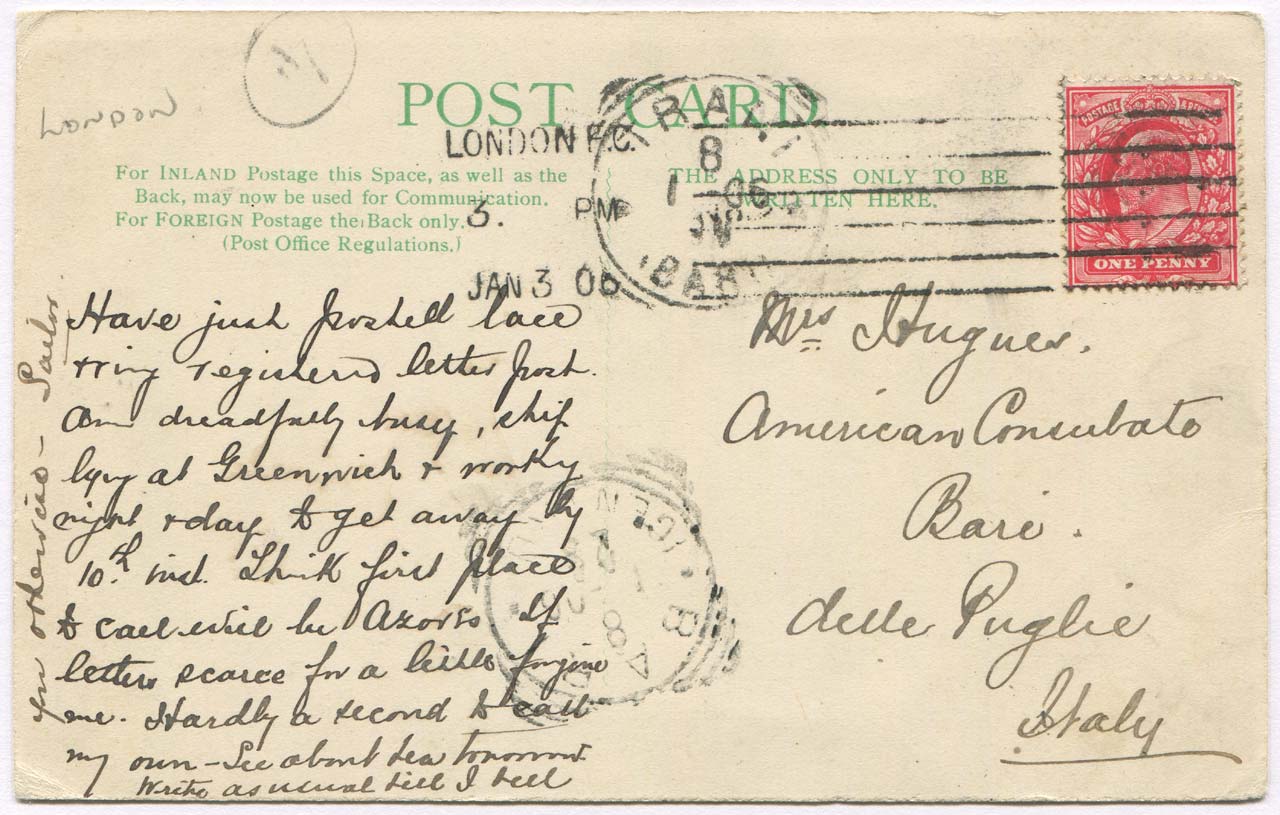 LONDON
POST CARD
LONDON F.C.
3. PM
JAN 3 06
8
1 06
BARI
For INLAND Postage this Space, as well as the
Back, may now be used for Communication.
For FOREIGN Postage the Back only.
(Post Office Regulations.)
THE ADDRESS ONLY TO BE
WRITTEN HERE.
POSTAGE
ONE PENNY
Have just posted lace
& ring registered letter post.
Am dreadfully busy, ship
lying at Greenwich & workg
night & day to get away by
10th inst. Think first place
to call will be Azores If
letters scarce for a little forgive
me. Hardly a second to call
my own – See about tea tomorrow.
Write as usual till I tell
you otherwise – Sailor
Mrs Hugues.
American Consulate
Bari.
delle Puglie
Italy